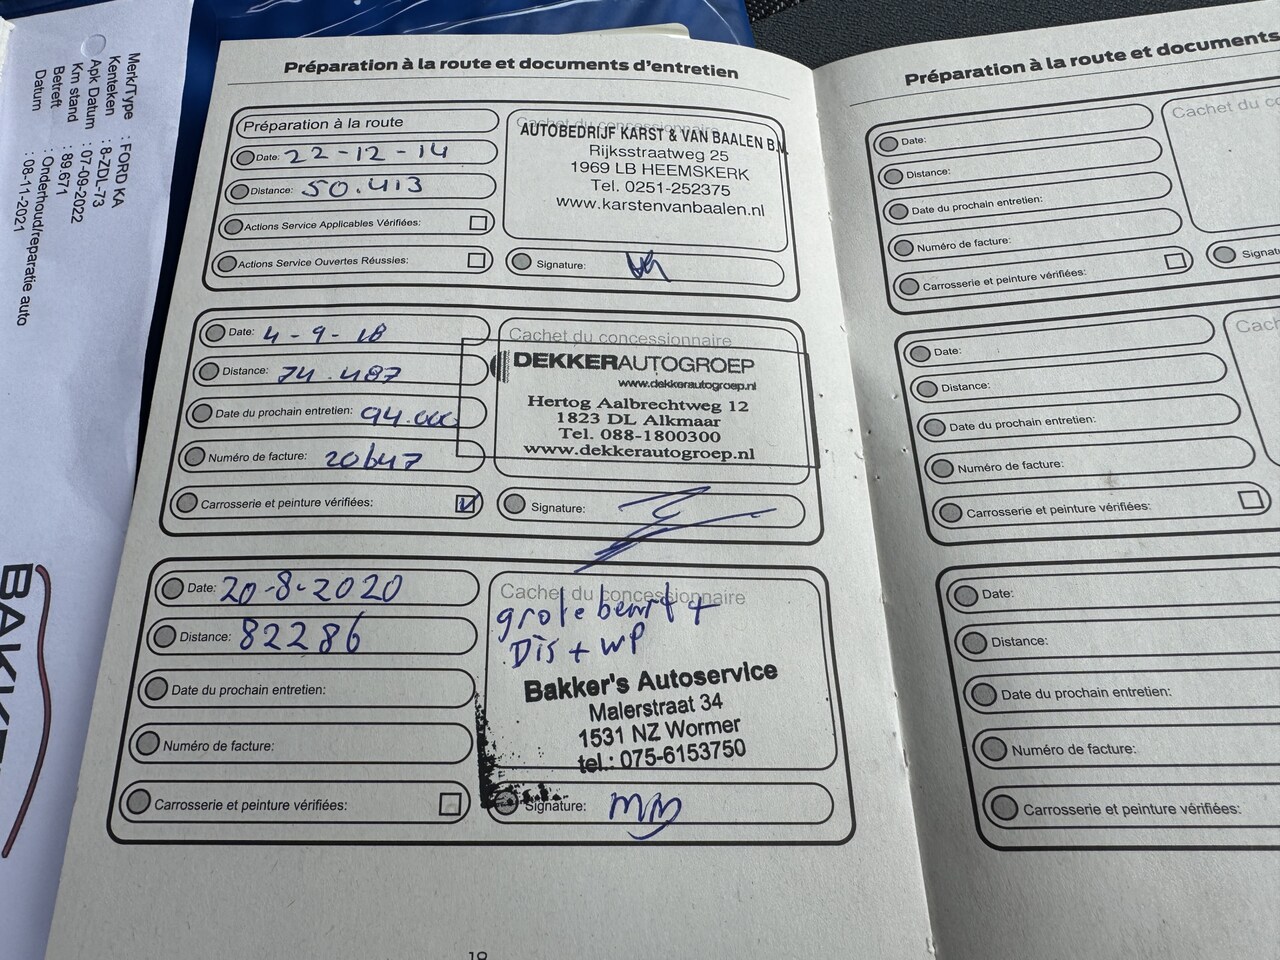 Merk/Type : FORD KA
Kenteken : 8-ZDL-73
Apk Datum : 07-09-2022
Km stand : 89.671
Betreft : Onderhoud/reparatie auto
Datum : 08-11-2021
Préparation à la route et documents d'entretien
Préparation à la route
Date: 22-12-14
Distance: 50.413
Actions Service Applicables Vérifiées:
Actions Service Ouvertes Réussies:
Cachet du concessionnaire
AUTOBEDRIJF KARST & VAN BAALEN B.V.
Rijksstraatweg 25
1969 LB HEEMSKERK
Tel. 0251-252375
www.karstenvanbaalen.nl
Signature:
Date: 4-9-18
Distance: 74.487
Date du prochain entretien: 94.000
Numéro de facture: 20647
Carrosserie et peinture vérifiées:
Cachet du concessionnaire
DEKKERAUTOGROEP
www.dekkerautogroep.nl
Hertog Aalbrechtweg 12
1823 DL Alkmaar
Tel. 088-1800300
www.dekkerautogroep.nl
Signature:
Date: 20-8-2020
Distance: 82286
Date du prochain entretien:
Numéro de facture:
Carrosserie et peinture vérifiées:
Cachet du concessionnaire
grote beurt +
Dis + WP
Bakker's Autoservice
Malerstraat 34
1531 NZ Wormer
tel.: 075-6153750
Signature:
Préparation à la route et documents
Date:
Distance:
Date du prochain entretien:
Numéro de facture:
Carrosserie et peinture vérifiées:
Cachet du co
Signat
Date:
Distance:
Date du prochain entretien:
Numéro de facture:
Carrosserie et peinture vérifiées:
Cach
Date:
Distance:
Date du prochain entretien:
Numéro de facture:
Carrosserie et peinture vérifiées: